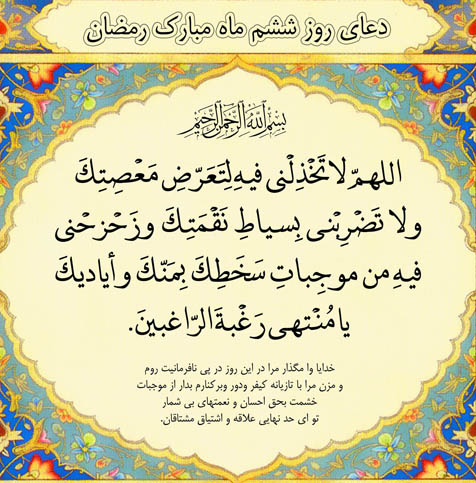 دعای روز ششم ماه مبارک رمضان
بسم الله الرحمن الرحیم
اللهمّ لا تَخْذِلْنی فیهِ لِتَعَرّضِ مَعْصِیَتِكَ
ولا تَضْرِبْنی بِسیاطِ نَقْمَتِكَ وزَحْزِحْنی
فیهِ من موجِباتِ سَخَطِكَ بِمَنّكَ وأیادیكَ
یا مُنْتهی رَغْبةَ الرّاغبینَ.
خدایا وا مگذار مرا در این روز در پی نافرمانیت روم
و مزن مرا با تازیانه کیفر ودور وبرکنارم بدار از موجبات
خشمت بحق احسان و نعمتهای بی شمار
تو ای حد نهایی علاقه و اشتیاق مشتاقان.